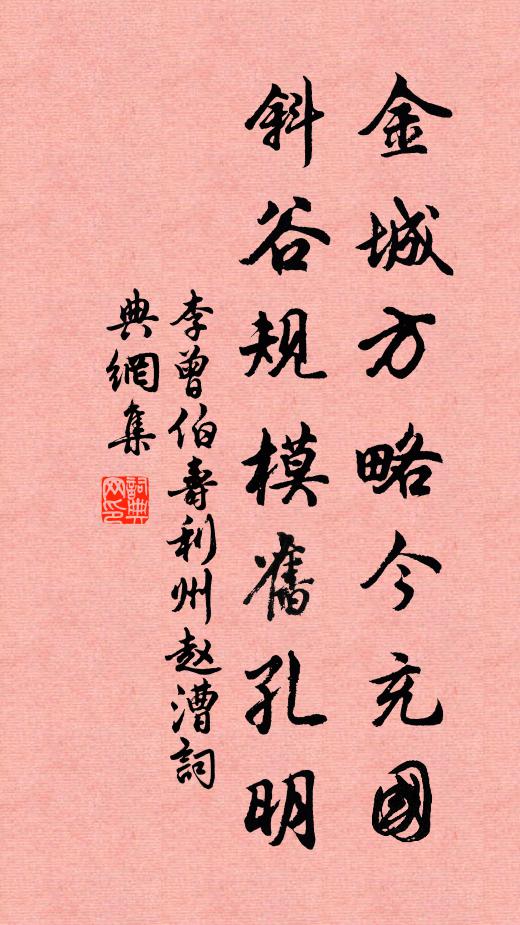 金城方略今充國
斜谷規模舊孔明
李曾伯壽利州赵漕詞
典網集
詞典網印